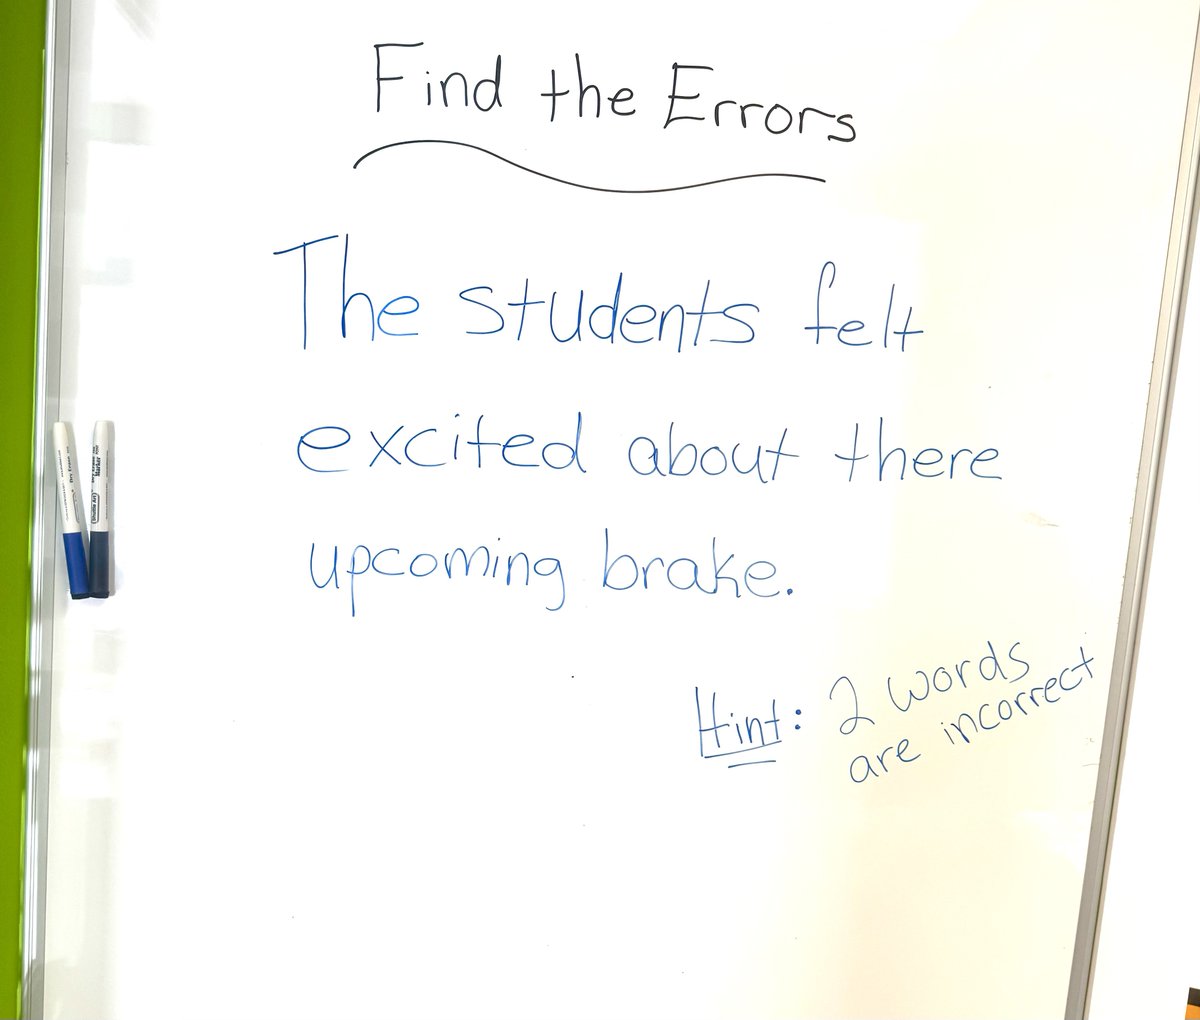 Find the Errors
The students felt
excited about there
upcoming brake.
Hint: 2 words
are incorrect